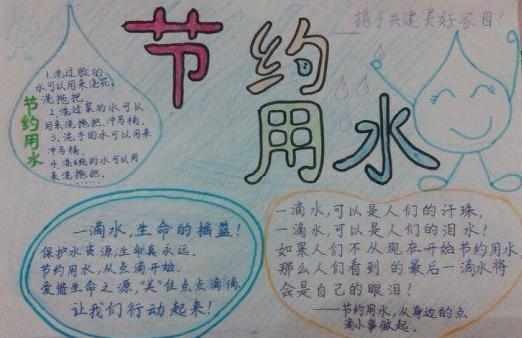 节约用水
携手共建美好家园!
节约用水
1.洗过脸的
水可以用来浇花,
洗拖把.
2.洗过菜的水可以
用来洗拖把.冲马桶.
3.洗手的水可以用来
冲马桶.
的水可以用
来洗拖把.
一滴水,生命的摇篮!
保护水资源,生命真永远.
节约用水,从点滴开始.
爱惜生命之源,"关"住点点滴滴
让我们行动起来!
一滴水,可以是人们的汗珠,
一滴水,可以是人们的泪水!
如果人们不从现在开始节约用水,
那么人们看到的最后一滴水将
会是自己的眼泪!
——节约用水,从身边的点
滴小事做起.